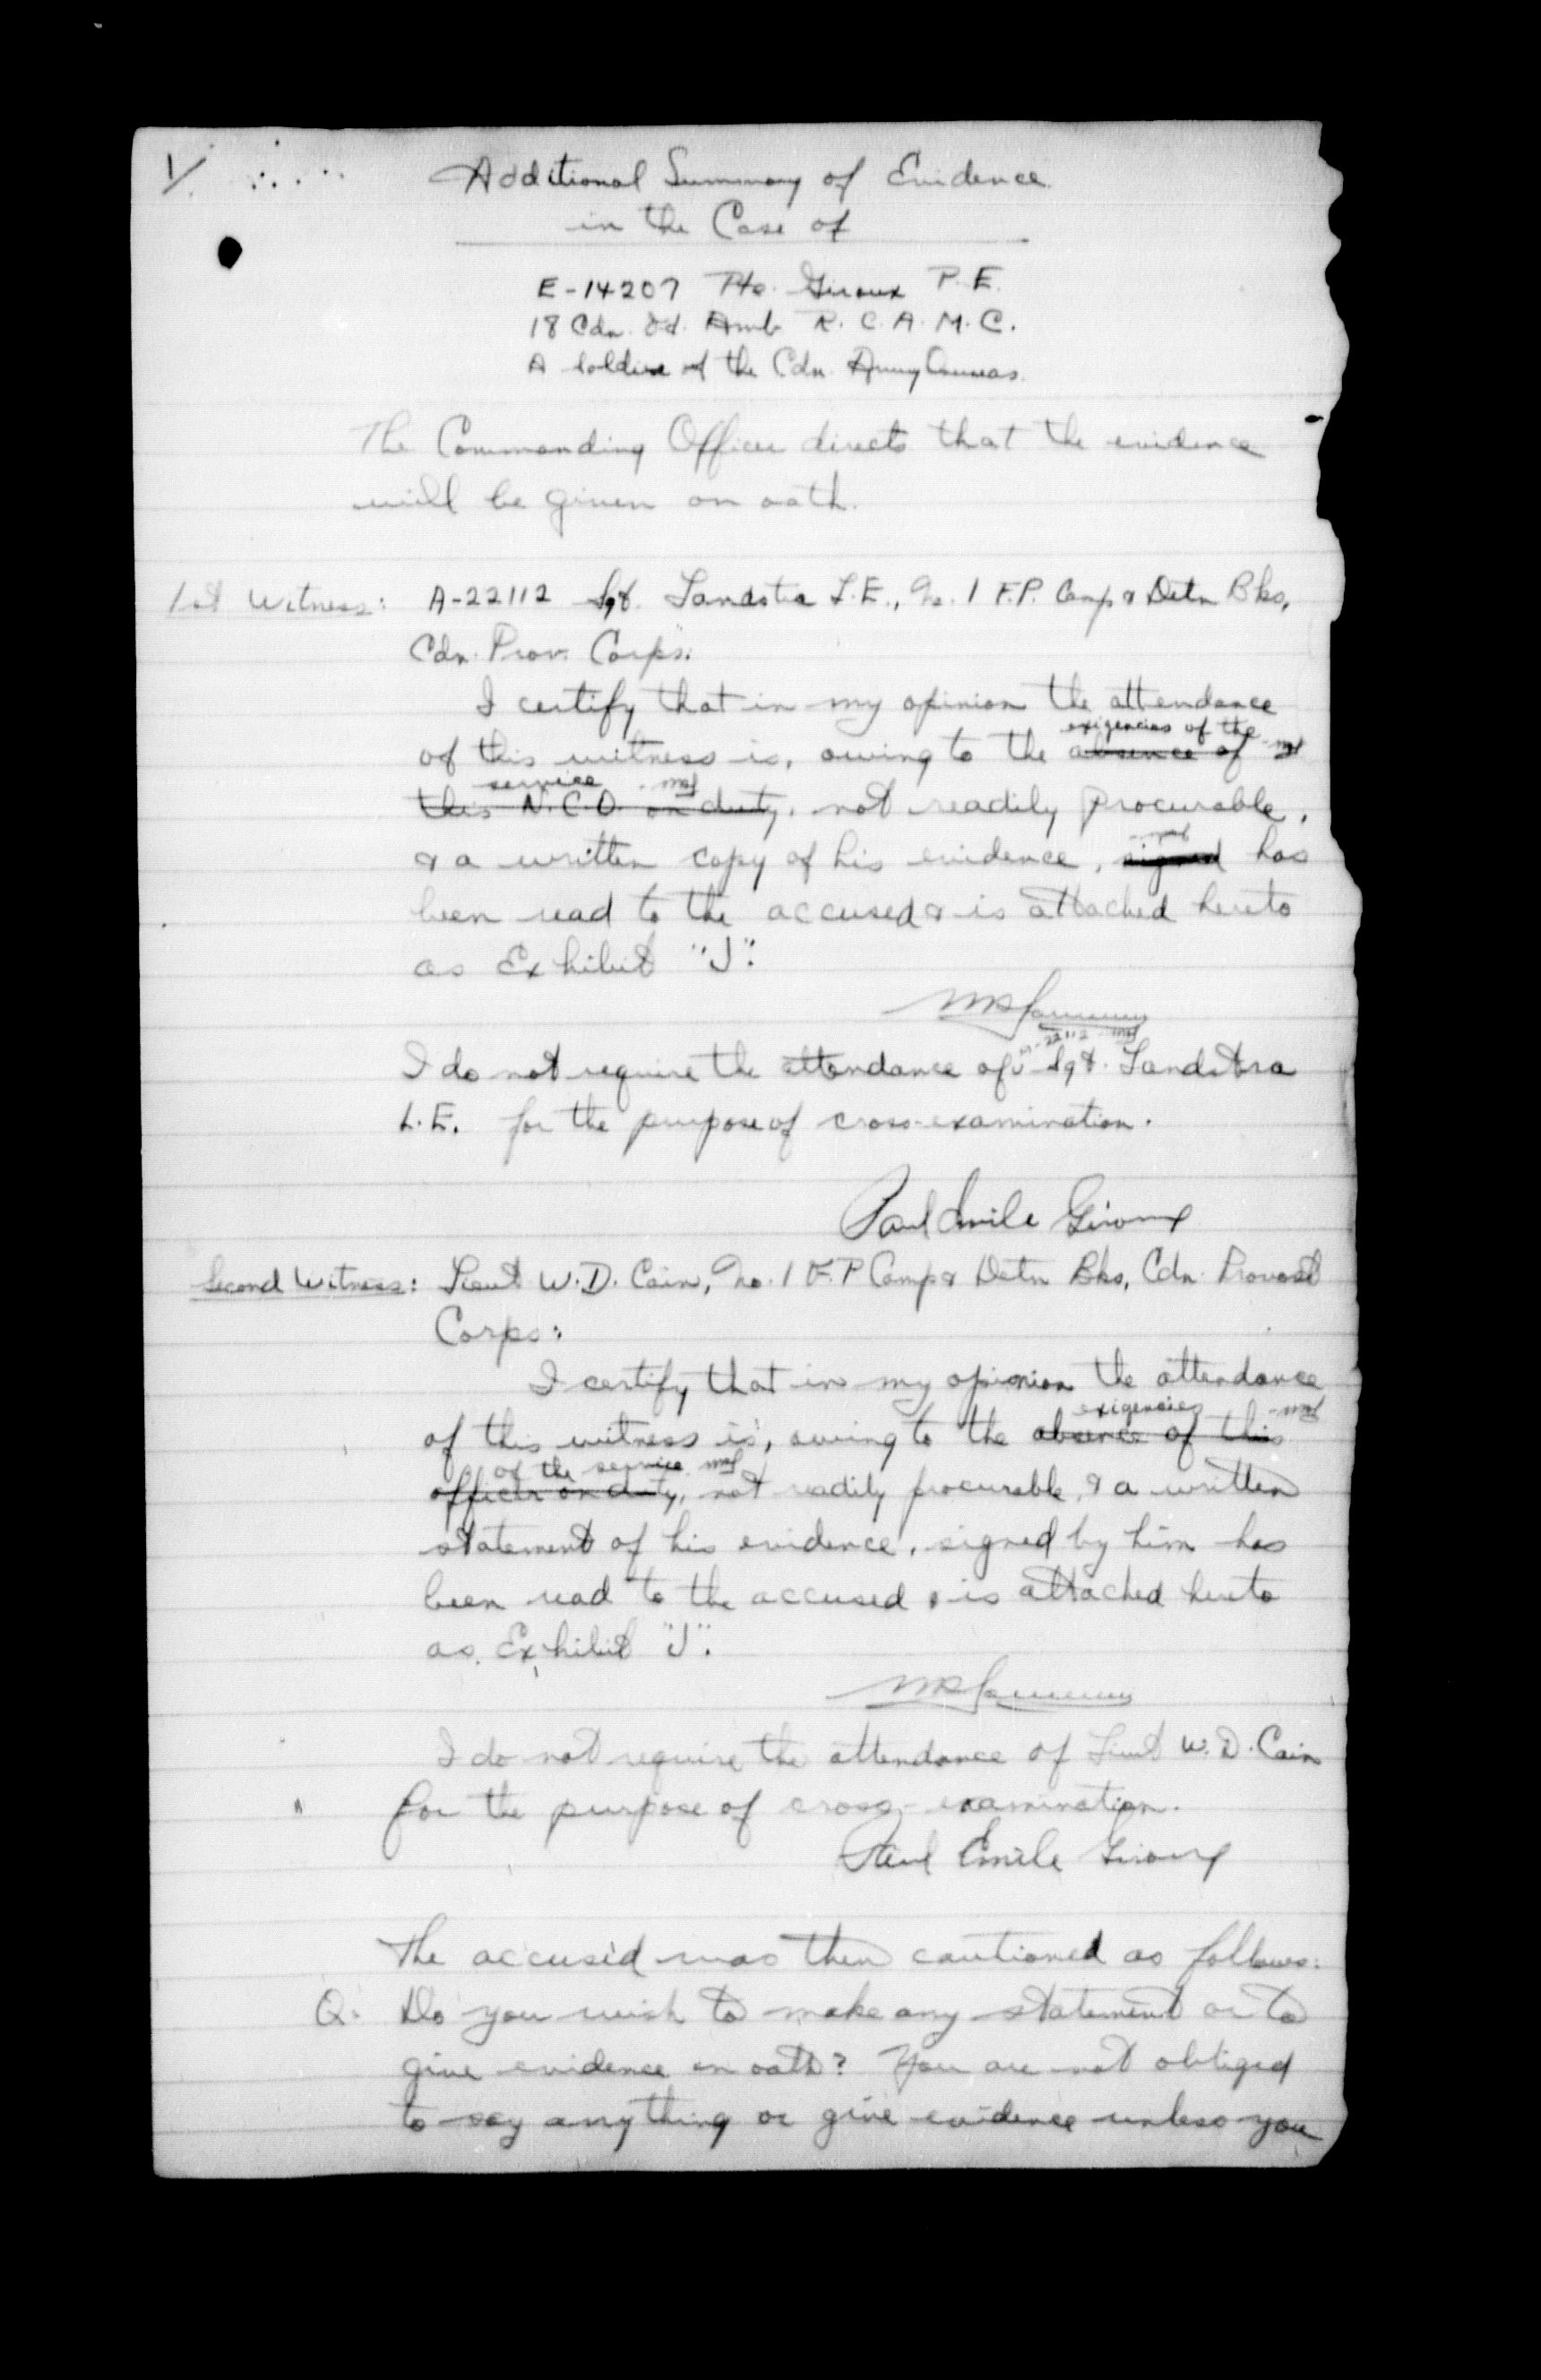 1/
Additional Summary of Evidence
in the Case of
E-14207 Pte. Giroux P.E.
18 Cdn. Fd. Amb R.C.A.M.C.
A soldier of the Cdn. Army Overseas.
The Commanding Officer directs that the evidence
will be given on oath.
1st Witness: A-22112 Sgt. Landstra L.E., No. 1 F.P. Camp & Detn Bks,
Cdn. Prov. Corps:
I certify that in my opinion the attendance
exigencies of the
of this witness is, owing to the absence of
service
this N.C.O. on duty, not readily procurable,
& a written copy of his evidence, signed has
been read to the accused & is attached hereto
as Exhibit "J".
A-22112
I do not require the attendance of Sgt. Landstra
L.E. for the purpose of cross-examination.
Paul Emile Giroux
Second Witness: Lieut W.D. Cain, No. 1 F.P Camp & Detn Bks, Cdn. Provost
Corps:
I certify that in my opinion the attendance
exigencies
of this witness is, owing to the absence of this
of the service
officer on duty, not readily procurable, & a written
statement of his evidence, signed by him has
been read to the accused & is attached hereto
as Exhibit "J".
I do not require the attendance of Lieut W.D. Cain
for the purpose of cross-examination.
Paul Emile Giroux
The accused was then cautioned as follows:
Q: Do you wish to make any statement or to
give evidence on oath? You are not obliged
to say anything or give evidence unless you